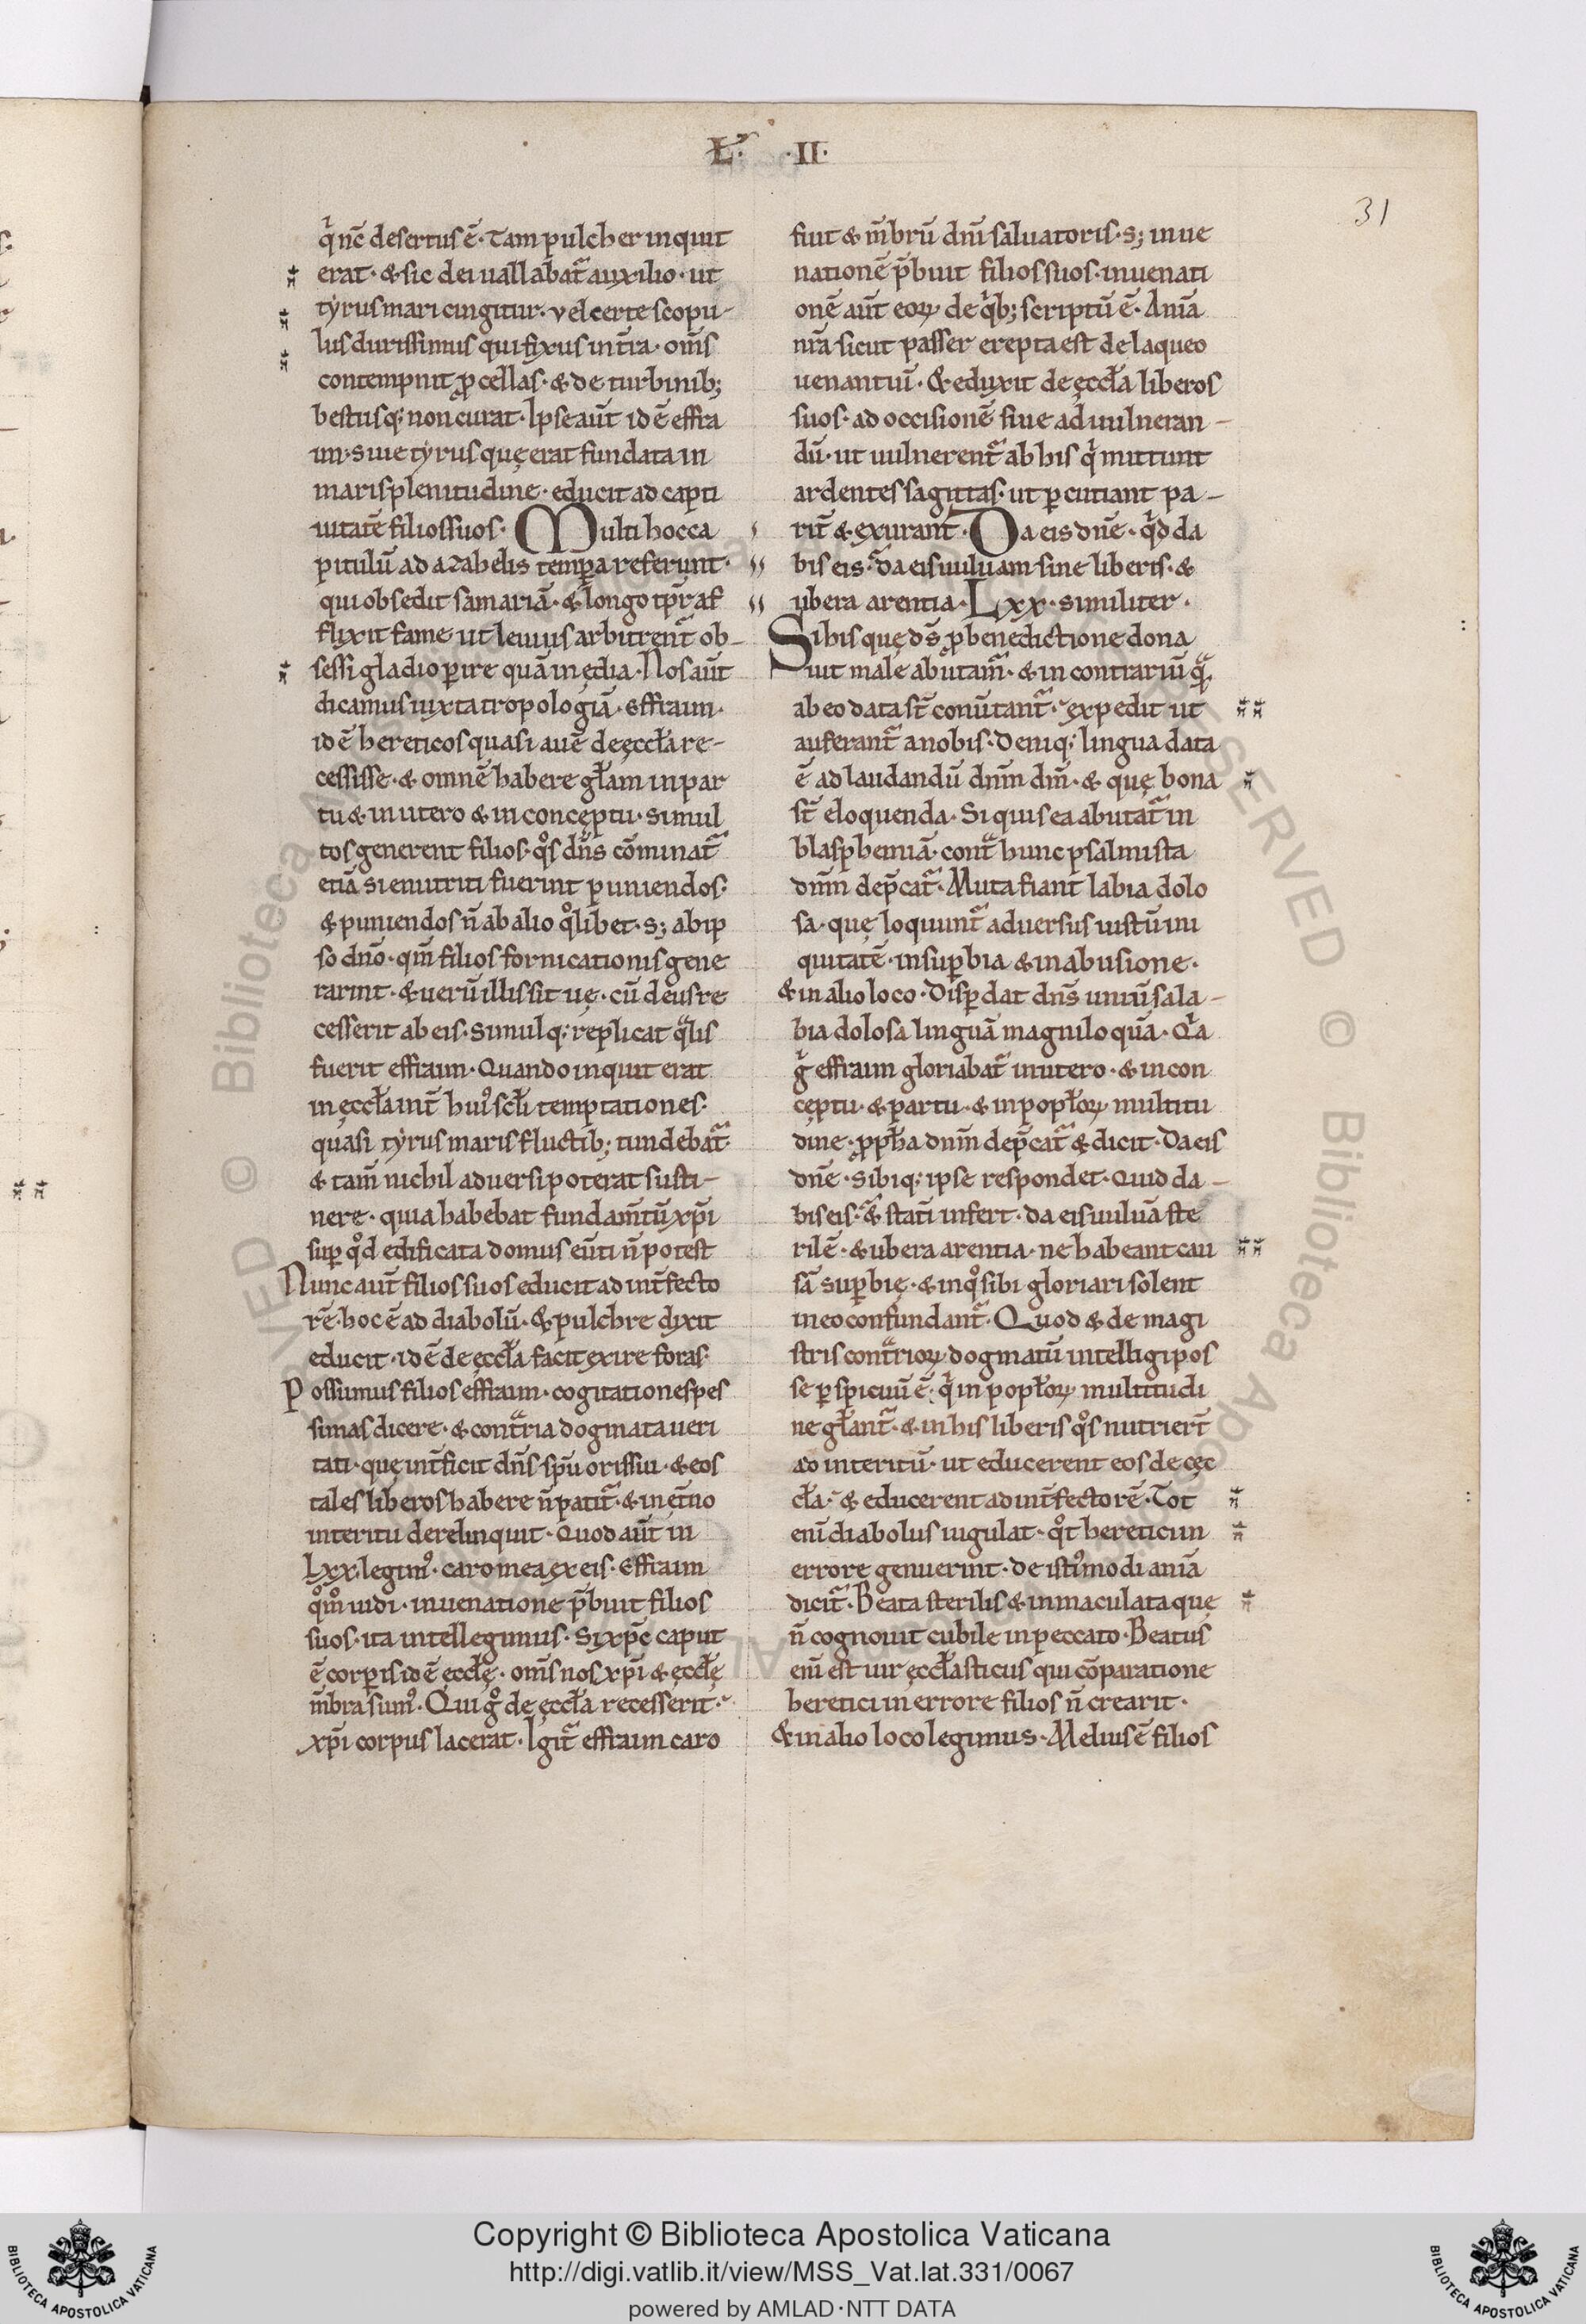 L. .II.
31
q̍ nc̄ desertus ē. Tam pulcher inquit
erat. & sic dei uallabat᷑ auxilio. ut
tyrus mari cingitur. vel certe scopu-
lus durissimus qui fixus in tr̄a. om̄s
contempnit ꝓcellas. & de turbinib;
bestiisq; non curat. Ipse aūt idē effra
im. siue tyrus quę erat fundata in
maris plenitudine. educit ad capti
uitatē filios suos. Multi hoc ca
pitulū ad azahelis temp̱a referunt.
qui obsedit samariā. & longo tp̄r af
flixit fame ut leuius arbitrent᷑ ob-
sessi gladio ꝑire quā inedia. Nos aūt
dicamus iuxta tropologiā. Effraim.
idē hereticos quasi auē de ęccła re-
cessisse. & omnē habere głam in par
tu & in utero & in conceptu. Simul
tos generent filios. qͦs dn̄s cōminat᷑
etiā si enutriti fuerint puniendos.
& puniendos n̄ ab alio qͦlibet. s; ab ip
so dn̄o. qm̄ filios fornicationis gene
rarint. & uerū illis sit uę. cū deus re
cesserit ab eis. Simulq; replicat qᷓlis
fuerit effraim. Quando inquit erat
in ęccła int̄ hui᷒ scłi temptationes.
quasi tyrus maris fluctib; tundebat᷑.
& tam̄ nichil aduersi poterat susti-
nere. quia habebat fundam̄tū xp̄i
suꝑ qͦd edificata domus eu̅ti n̄ potest
Nunc aūt filios suos educit ad int̄fecto
rē. hoc ē ad diabolū. & pulchre dixit
educit. idē de ęccła facit exire foras.
Possumus filios effraim. cogitationes pes
simas dicere. & contᷓria dogmata ueri
tati. quę int̄ficit dn̄s sp̄u oris sui. & eos
tales liberos habere n̄ patit᷑. & in et̄no
interitu derelinquit. Quod aūt in
Lxx. legim᷒. caro mea ex eis. Effraim
qͦm̊ uidi. in uenatione p̄buit filios
suos. ita intellegimus. Si xp̄c caput
ē corꝑis idē ęccłę. om̄s nos xp̄i & ęccłę
m̄bra sum᷒. Qui gͦ de ęccła recesserit.
xp̄i corpus lacerat. Igit᷑ effraim caro
fiut & m̄brū dn̄i saluatoris. s; in ue
nationē p̄buit filios suos. in uenati
onē aūt eoꝝ de q̍b; scriptū ē. Anīa
nr̄a sicut passer erepta est de laqueo
uenantiū. & eduxit de ęccła liberos
suos. ad occisionē siue ad uulneran-
dū. ut uulnerent᷑ ab his q̍ mittunt
ardentes sagittas. ut ꝑcutiant pa-
rit̄ & exurant. Da eis dn̄e. q̍d da
bis eis. da eis uuluam sine liberis. &
ubera arentia. Lxx. similiter.
Si his quę dς ꝓ benedictione dona
uit male abutam᷑. & in contrarīu qᷓ
ab eo data st̄ conūtant᷑. expedit ut
auferant᷑ a nobis. Deniq; lingua data
ē ad laudandū dn̄m dm̄. & quę bona
st̄ eloquenda. Si quis ea abutat᷑ in
blasphemiā. contᷓ hunc psalmista
dn̄m dep̄cat᷑. Muta fiant labia dolo
sa. quę loquunt᷑ aduersus iustū ini
quitatē. in suꝑbia & in abusione.
& in alio loco. Disꝑdat dn̄s uniūsa la-
bia dolosa linguā magniloquā. Q̍a
g̍ effraim gloriabat᷑ in utero. & in con
cęptu. & partu. & in popłoꝝ multitu
dine. ꝓph̄a dn̄m dep̄cat᷑ & dicit. Da eis
dn̄e. Sibiq; ipse respondet. Quid da-
bis eis. & stati̅ infert. da eis uuluā ste
rilē. & ubera arentia. ne habeant cau
sā suꝑbię. & in qͦ sibi gloriari solent
in eo confundant᷑. Quod & de magi
stris contᷓrioꝝ dogmatū intelligi pos
se ꝑspicuū ē. q̍ in popłoꝝ multitudi
ne głant᷑. & in his liberis qͦs nutriert̄
ad interitū. ut educerent eos de ęcc
cła. & educerent ad int̄fectorē. Tot
eni̅ diabolus iugulat. qͦt heretici in
errore genuerint. de isti᷒modi anīa
dicit᷑. Beata sterilis & inmaculata quę
n̄ cognouit cubile in peccato. Beatus
eni̅ est uir ęccłasticus qui cōparatione
heretici in errore filios n̄ crearit.
& in alio loco legimus. Melius ē filios
Copyright © Biblioteca Apostolica Vaticana
http://digi.vatlib.it/view/MSS_Vat.lat.331/0067
powered by AMLAD·NTT DATA
BIBLIOTECA APOSTOLICA VATICANA
BIBLIOTECA APOSTOLICA VATICANA